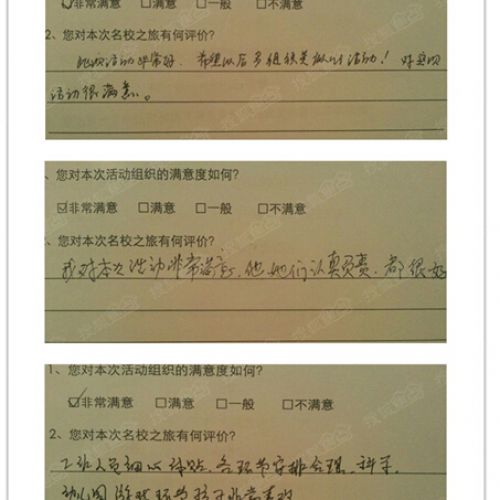 ☑非常满意 □满意 □一般 □不满意
2、您对本次名校之旅有何评价?
此次活动非常好。希望以后多组织类似的活动!对这次
活动很满意。
、您对本次活动组织的满意度如何?
☑非常满意 □满意 □一般 □不满意
、您对本次名校之旅有何评价?
我对本次活动非常满意,他她们认真负责,都很好
1、您对本次活动组织的满意度如何?
☑非常满意 □满意 □一般 □不满意
2、您对本次名校之旅有何评价?
工作人员细心体贴,各环节安排合理、科学,